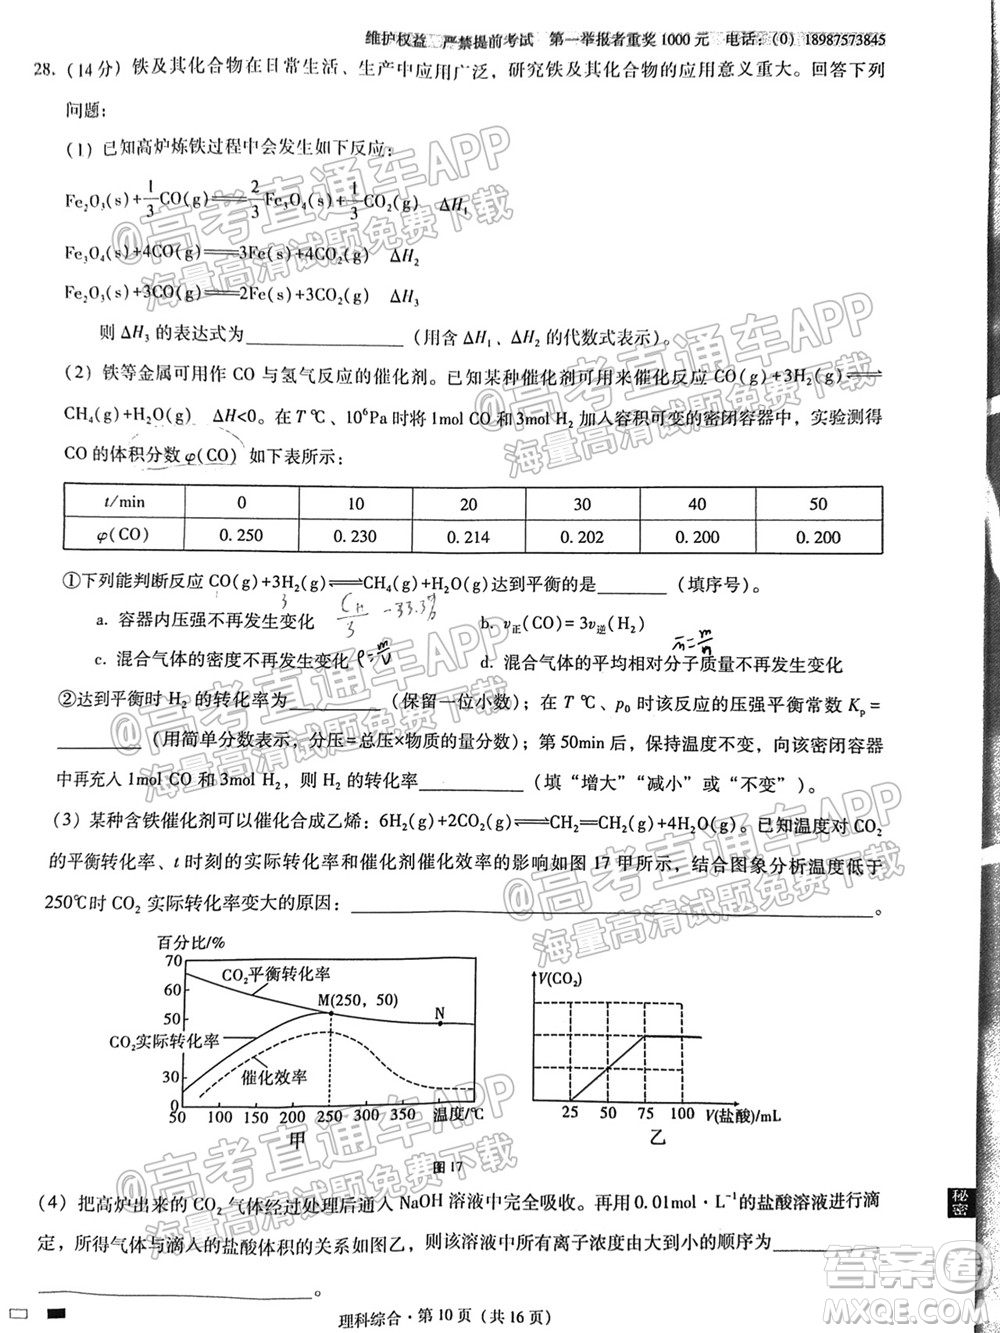 维护权益 严禁提前考试 第一举报者重奖1000元 电话:(0) 18987573845
28. (14分) 铁及其化合物在日常生活、生产中应用广泛，研究铁及其化合物的应用意义重大。回答下列
问题：
(1) 已知高炉炼铁过程中会发生如下反应：
Fe₂O₃(s)+1/3CO(g)═══2/3Fe₃O₄(s)+1/3CO₂(g) ΔH₁
Fe₃O₄(s)+4CO(g)═══3Fe(s)+4CO₂(g) ΔH₂
Fe₂O₃(s)+3CO(g)═══2Fe(s)+3CO₂(g) ΔH₃
则 ΔH₃ 的表达式为__________ (用含 ΔH₁、ΔH₂ 的代数式表示)。
(2) 铁等金属可用作 CO 与氢气反应的催化剂。已知某种催化剂可用来催化反应 CO(g)+3H₂(g)⇌
CH₄(g)+H₂O(g) ΔH<0。在 T ℃，10⁶Pa 时将 1mol CO 和 3mol H₂ 加入容积可变的密闭容器中，实验测得
CO 的体积分数 φ(CO) 如下表所示：
t/min 0 10 20 30 40 50
φ(CO) 0.250 0.230 0.214 0.202 0.200 0.200
①下列能判断反应 CO(g)+3H₂(g)⇌CH₄(g)+H₂O(g) 达到平衡的是______ (填序号)。
a. 容器内压强不再发生变化 b. v正(CO)=3v逆(H₂)
c. 混合气体的密度不再发生变化 ρ=m/V d. 混合气体的平均相对分子质量不再发生变化
②达到平衡时 H₂ 的转化率为________ (保留一位小数)；在 T ℃、p₀ 时该反应的压强平衡常数 Kp=
________ (用简单分数表示，分压=总压×物质的量分数)；第 50min 后，保持温度不变，向该密闭容器
中再充入 1mol CO 和 3mol H₂，则 H₂ 的转化率________ (填“增大”“减小”或“不变”)。
(3) 某种含铁催化剂可以催化合成乙烯：6H₂(g)+2CO₂(g)⇌CH₂═CH₂(g)+4H₂O(g)。已知温度对 CO₂
的平衡转化率、t 时刻的实际转化率和催化剂催化效率的影响如图 17 甲所示，结合图象分析温度低于
250℃时 CO₂ 实际转化率变大的原因：________________。
百分比/%
70
60
50
30
10
CO₂平衡转化率
M(250, 50)
N
CO₂实际转化率
催化效率
50 100 150 200 250 300 350 400 温度/℃
甲
V(CO₂)
25 50 75 100 V(盐酸)/mL
乙
图 17
(4) 把高炉出来的 CO₂ 气体经过处理后通入 NaOH 溶液中完全吸收。再用 0.01mol·L⁻¹的盐酸溶液进行滴
定，所得气体与滴入的盐酸体积的关系如图乙，则该溶液中所有离子浓度由大到小的顺序为________
________________。
理科综合·第 10 页（共 16 页）
秘密
@高考直通车APP
海量高清试题免费下载
@高考直通车APP
海量高清试题免费下载
@高考直通车APP
海量高清试题免费下载
@高考直通车APP
海量高清试题免费下载
@高考直通车APP
海量高清试题免费下载
答案圈
MXQE.COM